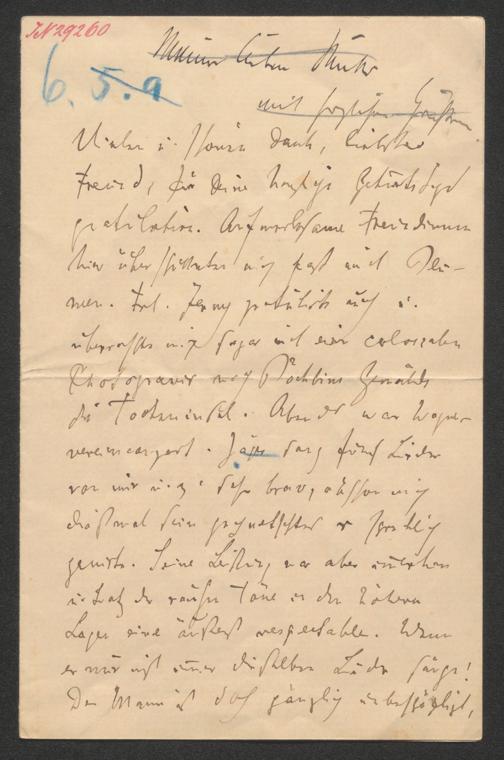 JN 29260
6. 5. 9
mit herzlichen Grüßen
Vielen u. schönen Dank, liebster
Freund, für Deine herzliche Geburtstags
gratulation. Aufmerksame Freundinnen
hier überschütteten mich fast mit Blu-
men. Frl. Jenny gratulirte auch u.
überraschte mich sogar mit einer colossalen
Photogravur nach Böcklins Gemälde
die Todteninsel. Abends war Wagner-
vereinconcert. Jäger sang fünf Lieder
von mir u. z. sehr brav, obschon mich
dießmal sein
genirte. Seine Leistung war aber immerhin
u. trotz der rauhen Töne in der höhern
Lage eine äußerst respectable. Wenn
er nur nicht immer dieselben Lieder sänge!
Der Mann ist doch gänzlich unbeschäftigt,